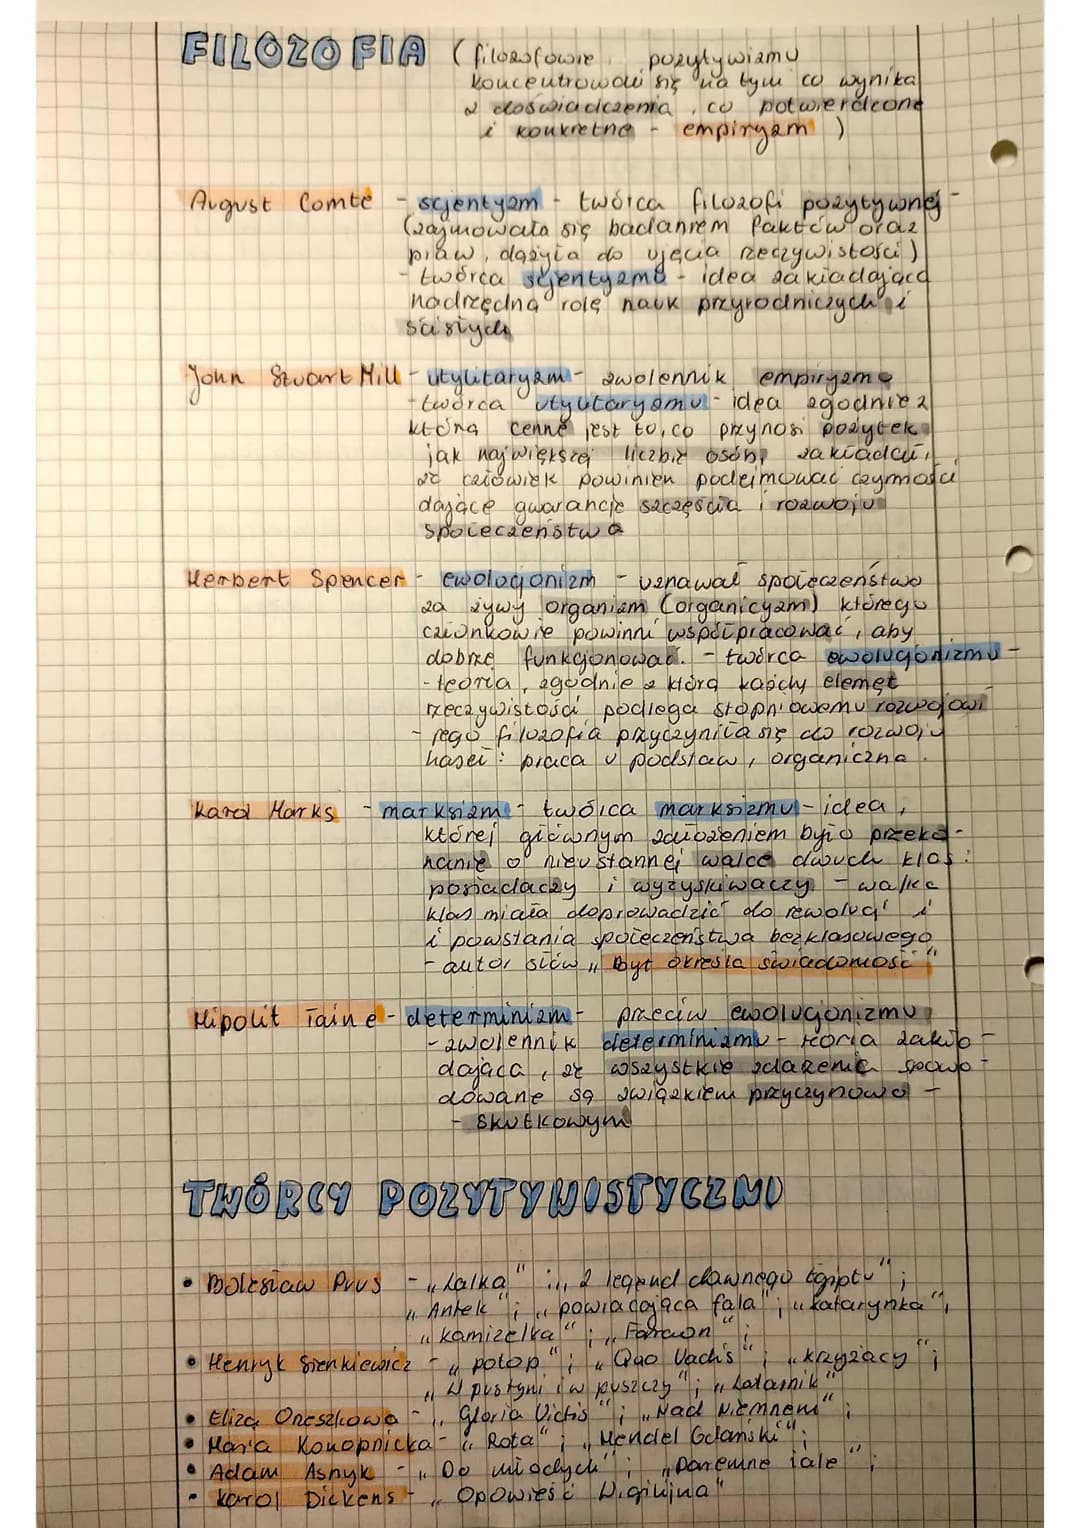 FILOZOFIA (filozofowie pozytywizmu
koncentrowali się na tym co wynika
z doświadczenia, co potwierdzone
i konkretne - empiryzm)
August Comte - scjentyzm - twórca filozofi pozytywnej -
(zajmowała się badaniem faktów oraz
praw, dążyła do ujęcia rzeczywistości)
- twórca scjentyzmu - idea zakładająca
nadrzędną rolę nauk przyrodniczych i
ścisłych
John Stuart Mill - utylitaryzm - zwolennik empiryzmu
- twórca utylitaryzmu - idea zgodnie z
którą cenne jest to, co przynosi pożytek
jak największej liczbie osób, zakładał,
że człowiek powinien podejmować czynności
dające gwarancje szczęścia i rozwoju
społeczeństwa
Herbert Spencer - ewolucjonizm - uznawał społeczeństwo
za żywy organizm (organicyzm) którego
członkowie powinni współpracować, aby
dobrze funkcjonować. - twórca ewolucjonizmu -
- teoria, zgodnie z którą każdy elemęt
rzeczywistości podlega stopniowemu rozwojowi
- jego filozofia przyczyniła się do rozwoju
haseł: praca u podstaw, organiczna.
Karol Marks - marksizm - twórca marksizmu - idea,
której głównym założeniem było przeko-
nanie o nieustannej walce dwuch klas:
posiadaczy i wyzyskiwaczy - walka
klas miała doprowadzić do rewolucji i
i powstania społeczeństwa bezklasowego
- autor słów „Byt określa świadomość"
Hipolit Taine - determinizm - przeciw ewolucjonizmu
- zwolennik determinizmu - teoria zakła-
dająca, że wszystkie zdarzenia spowo-
dowane są związkiem przyczynowo -
- skutkowym
TWÓRCY POZYTYWISTYCZNI
• Bolesław Prus - „Lalka"; „Z legend dawnego Egiptu";
„Antek"; „powracająca fala"; „Katarynka",
„kamizelka"; „Faraon";
• Henryk Sienkiewicz - „potop"; „Quo Vadis"; „krzyżacy";
„W pustyni i w puszczy"; „Latarnik"
• Eliza Orzeszkowa - „Gloria Victis"; „Nad Niemnem";
• Maria Konopnicka - „Rota"; „Mendel Gdański";
• Adam Asnyk - „Do młodych"; „Daremne żale";
• Karol Dickens - „Opowieść Wigilijna"